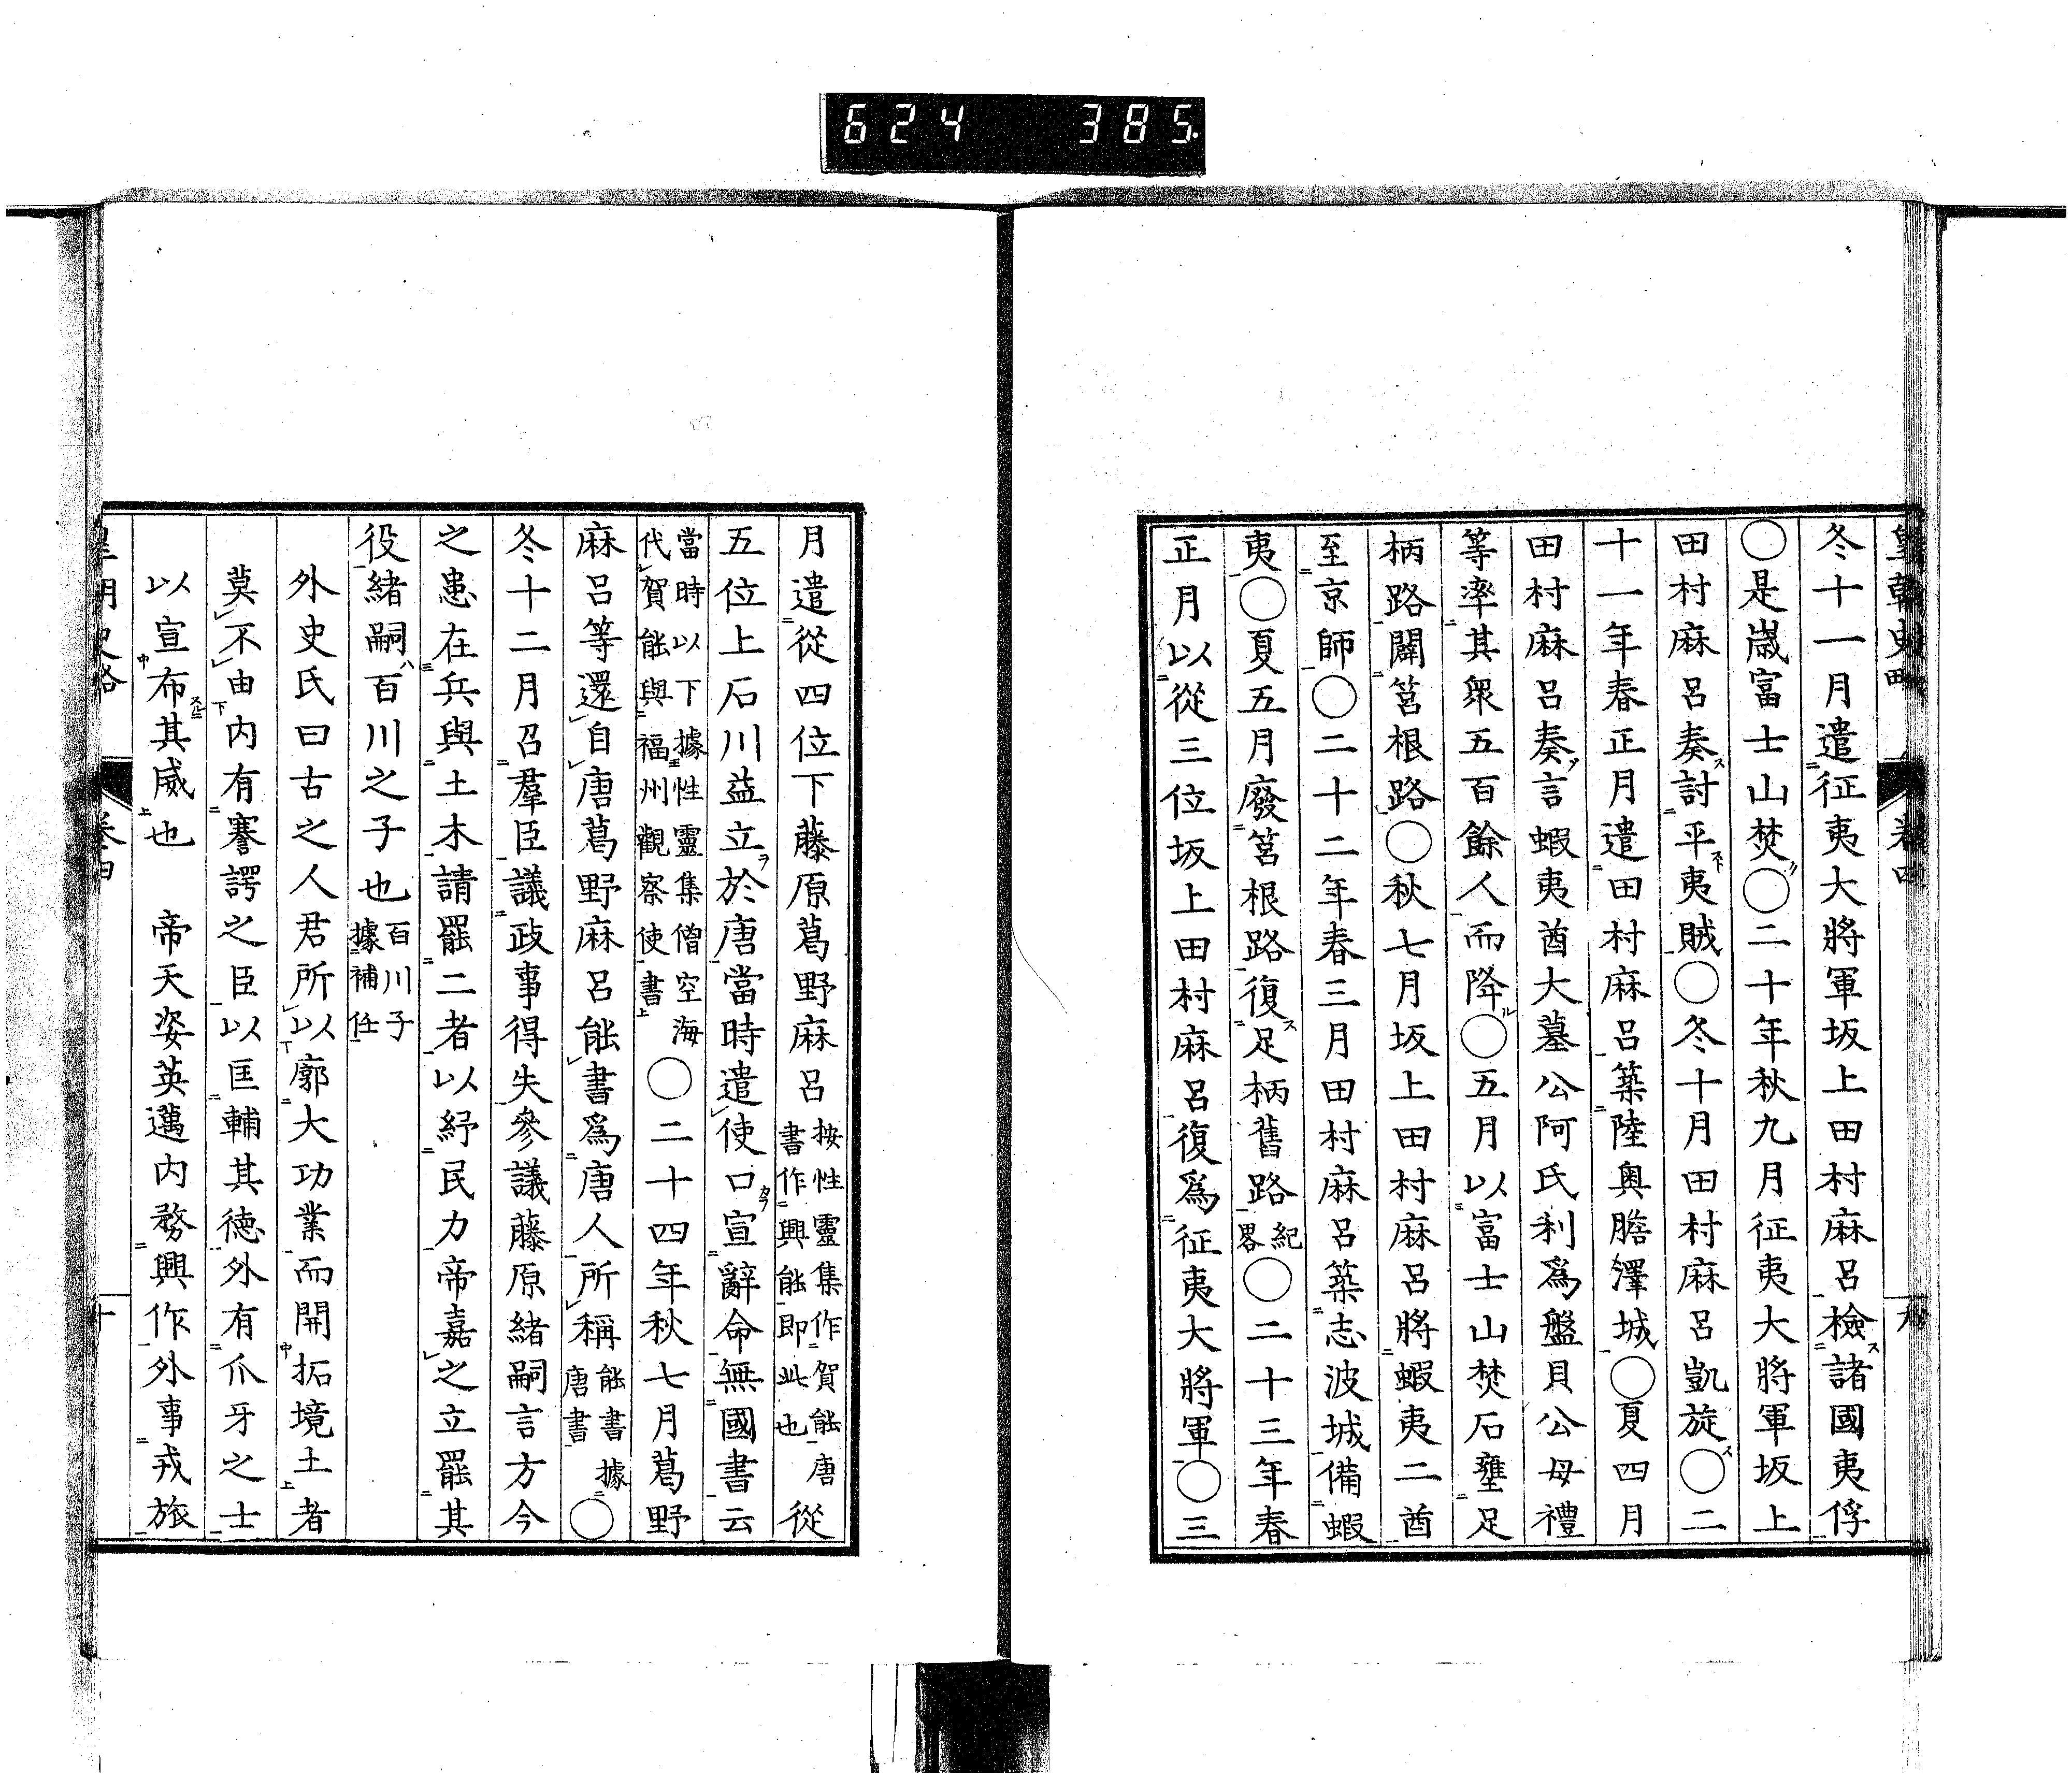 624 385
皇朝史略 卷四 九
冬十一月遣征夷大將軍坂上田村麻呂檢諸國夷俘
○是歲富士山焚○二十年秋九月征夷大將軍坂上
田村麻呂奏討平夷賊○冬十月田村麻呂凱旋○二
十一年春正月遣田村麻呂築陸奧膽澤城○夏四月
田村麻呂奏言蝦夷酋大墓公阿氐利爲盤具公母禮
等率其衆五百餘人而降○五月以富士山焚石壅足
柄路闢筥根路○秋七月坂上田村麻呂將蝦夷二酋
至京師○二十二年春三月田村麻呂築志波城備蝦
夷○夏五月廢筥根路復足柄舊路紀畧○二十三年春
正月以從三位坂上田村麻呂復爲征夷大將軍○三
月遣從四位下藤原葛野麻呂按性靈集作賀能唐書作興能即此也從
五位上石川益立於唐當時遣使口宣辭命無國書云
當時以下據性靈集僧空海代賀能與福州觀察使書○二十四年秋七月葛野
麻呂等還自唐葛野麻呂能書爲唐人所稱能書據唐書○
冬十二月召羣臣議政事得失參議藤原緒嗣言方今
之患在兵與土木請罷二者以紓民力帝嘉之立罷其
役緒嗣百川之子也百川子據補任
外史氏曰古之人君所以廓大功業而開拓境土者
莫不由內有謇諤之臣以匡輔其德外有爪牙之士
以宣布其威也 帝天姿英邁內務興作外事戎旅
皇朝史略 卷四 十